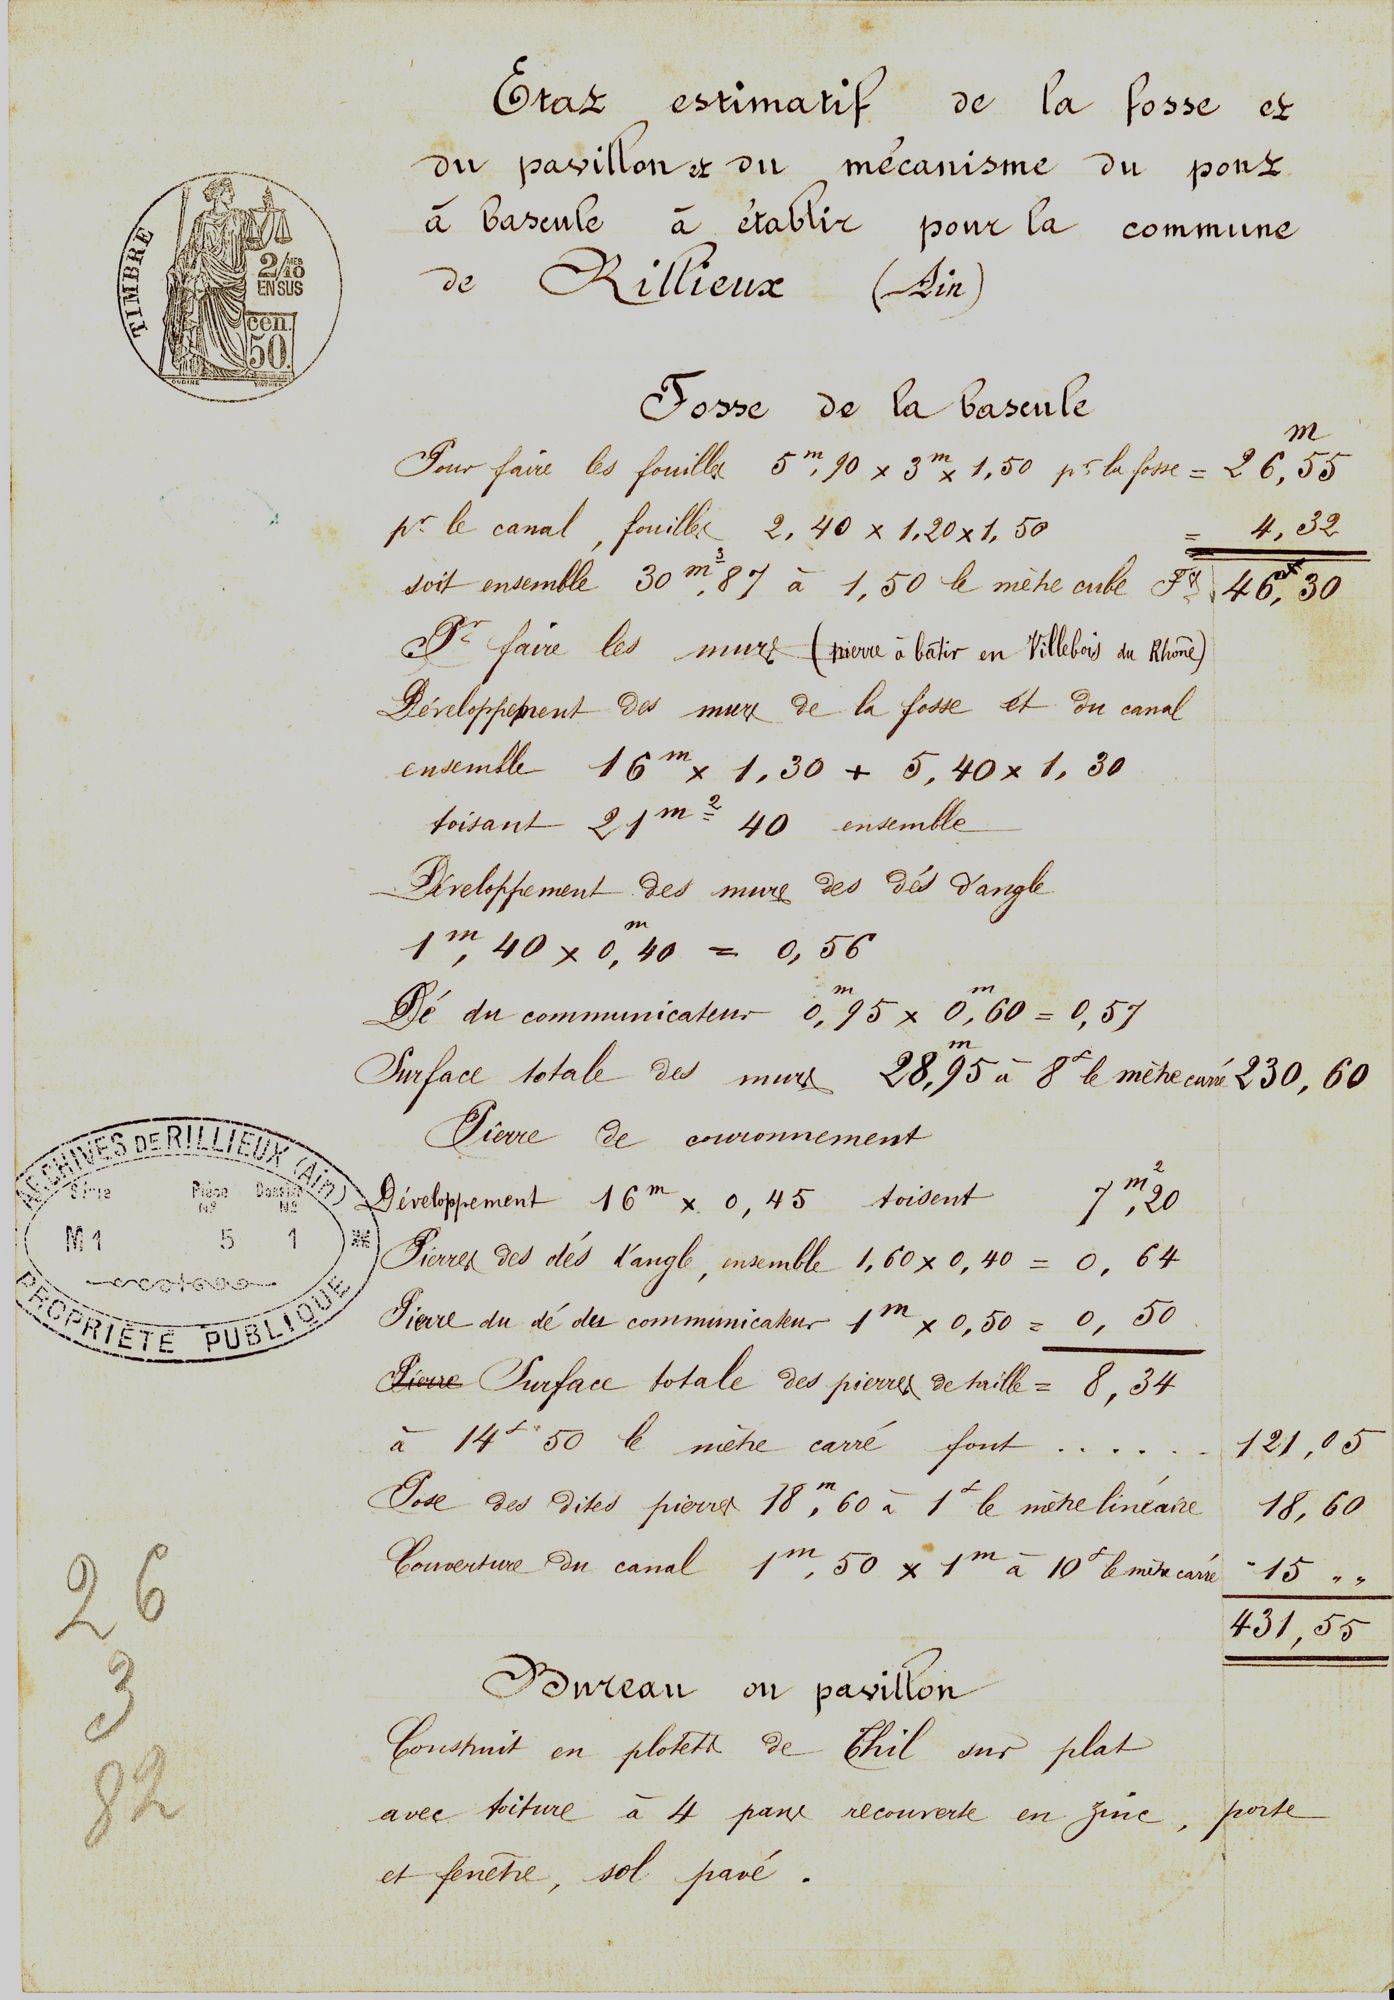 Etat estimatif de la fosse et
du pavillon et du mécanisme du pont
à bascule à établir pour la commune
de Rillieux (Ain)
TIMBRE
2/10 MES
EN SUS
cen.
50.
OUDINÉ
Fosse de la bascule
m
Pour faire les fouilles 5m,90 x 3m x 1,50 pr la fosse = 26,55
pr le canal, fouilles 2,40 x 1,20 x 1,50 = 4,32
soit ensemble 30m3,87 à 1,50 le mètre cube Fs 46,30
Pr faire les murs (pierre à bâtir en Villebois du Rhône)
Développement des murs de la fosse et du canal
ensemble 16m x 1,30 + 5,40 x 1,30
toisant 21m2 40 ensemble
Développement des murs des dés d'angle
1m,40 x 0,m40 = 0,56
Dé du communicateur 0,m95 x 0,m60 = 0,57
Surface totale des murs 28,m95 à 8f le mètre carré 230,60
Pierre de couronnement
Développement 16m x 0,45 toisent 7m2,20
Pierres des dés d'angle, ensemble 1,60 x 0,40 = 0,64
Pierre du dé du communicateur 1m x 0,50 = 0,50
Pierre Surface totale des pierres de taille = 8,34
à 14f 50 le mètre carré font ...... 121,05
Pose des dites pierres 18m,60 à 1f le mètre linéaire 18,60
Couverture du canal 1m,50 x 1m à 10f le mètre carré 15 " "
431,55
Bureau ou pavillon
Construit en plotets de Thil sur plat
avec toiture à 4 pans recouverte en zinc, porte
et fenêtre, sol pavé.
ARCHIVES DE RILLIEUX (Ain)
Série Pièce Nº Dossier Nº
M1 5 1
PROPRIÉTÉ PUBLIQUE
26
3
82